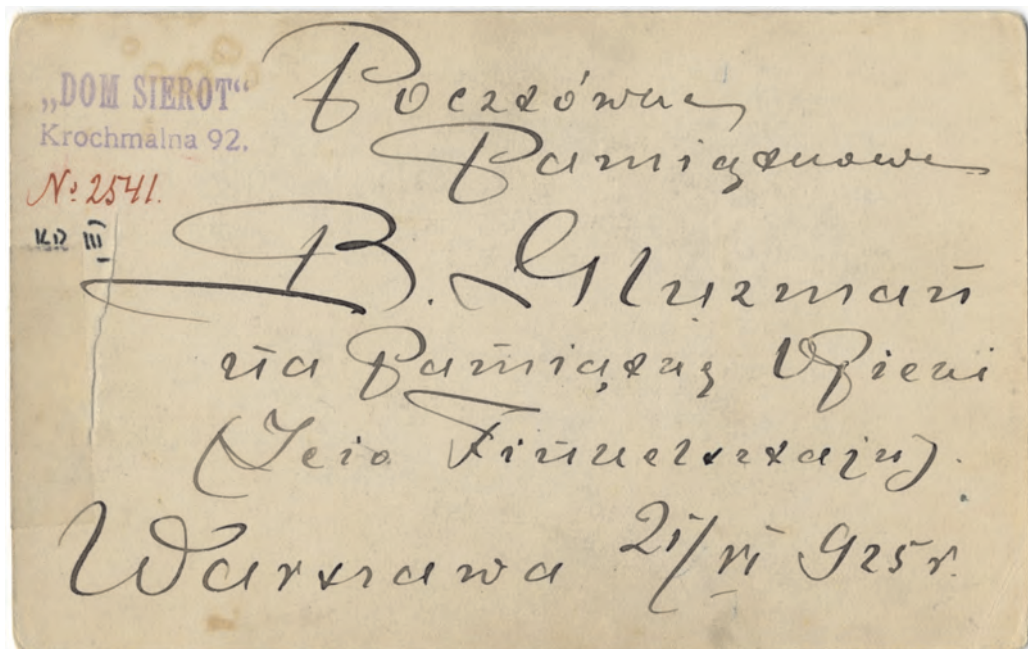 „DOM SIEROT“
Krochmalna 92.
№ 2541.
KR III
Pocztówka
Pamiątkowa
B. Gluzman
na Pamiątkę Opieki
(Icio Finkelsztajn).
Warszawa 21/VI 925 r.